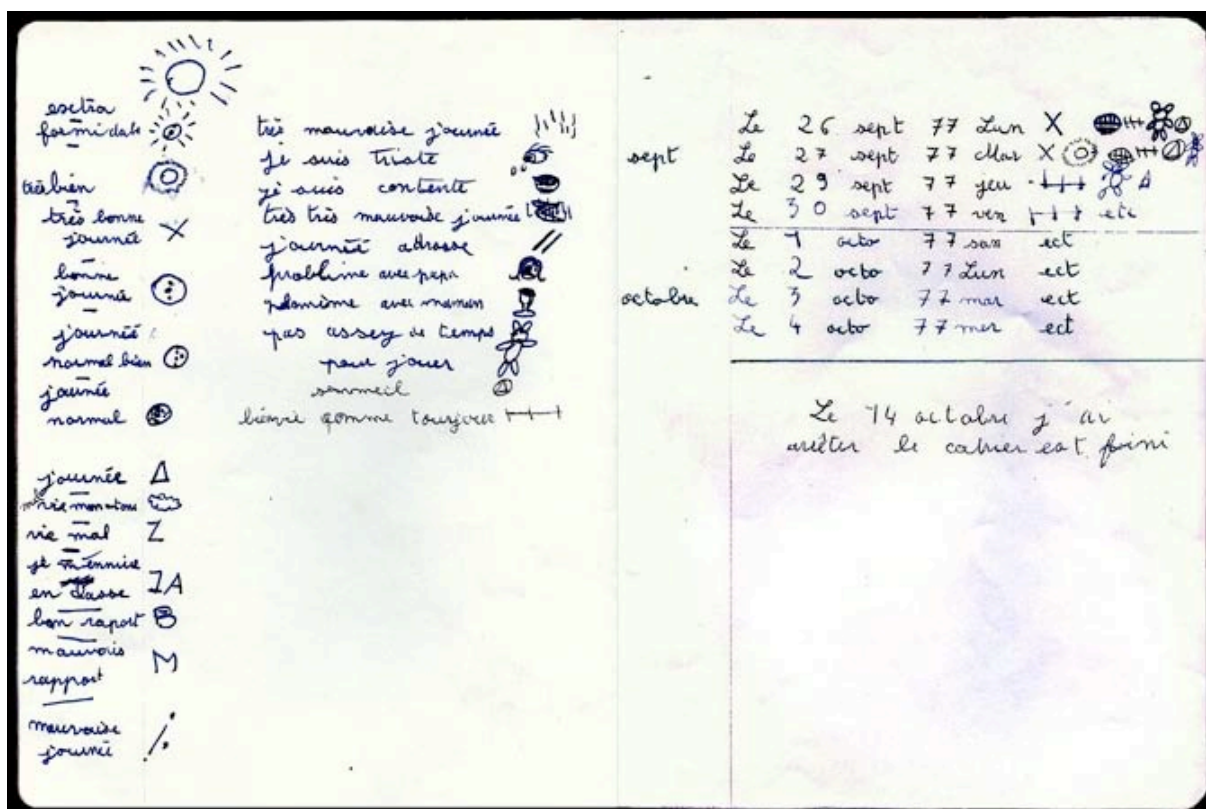 esctra
formidable
très bien
très bonne
journée X
bonne
journée
journée
normal bien
journée
normal
journée
vie monotone
vie mal Z
je m'ennuie
en classe JA
bon raport B
mauvais
rapport M
mauvaise
journée
très mauvaise journée
je suis triste
je suis contente
très très mauvaise journée
journée adrosse
problème avec papa
avec maman
pas assey de temps
pour jouer
sommeil
comme toujours
sept
octobre
Le 26 sept 77 Lun X
Le 27 sept 77 Mar X
Le 29 sept 77 jeu
Le 30 sept 77 ven etc
Le 1 octo 77 sam ect
Le 2 octo 77 Lun ect
Le 3 octo 77 mar ect
Le 4 octo 77 mer ect
Le 14 octobre j'ai
arrêter le cahier est fini